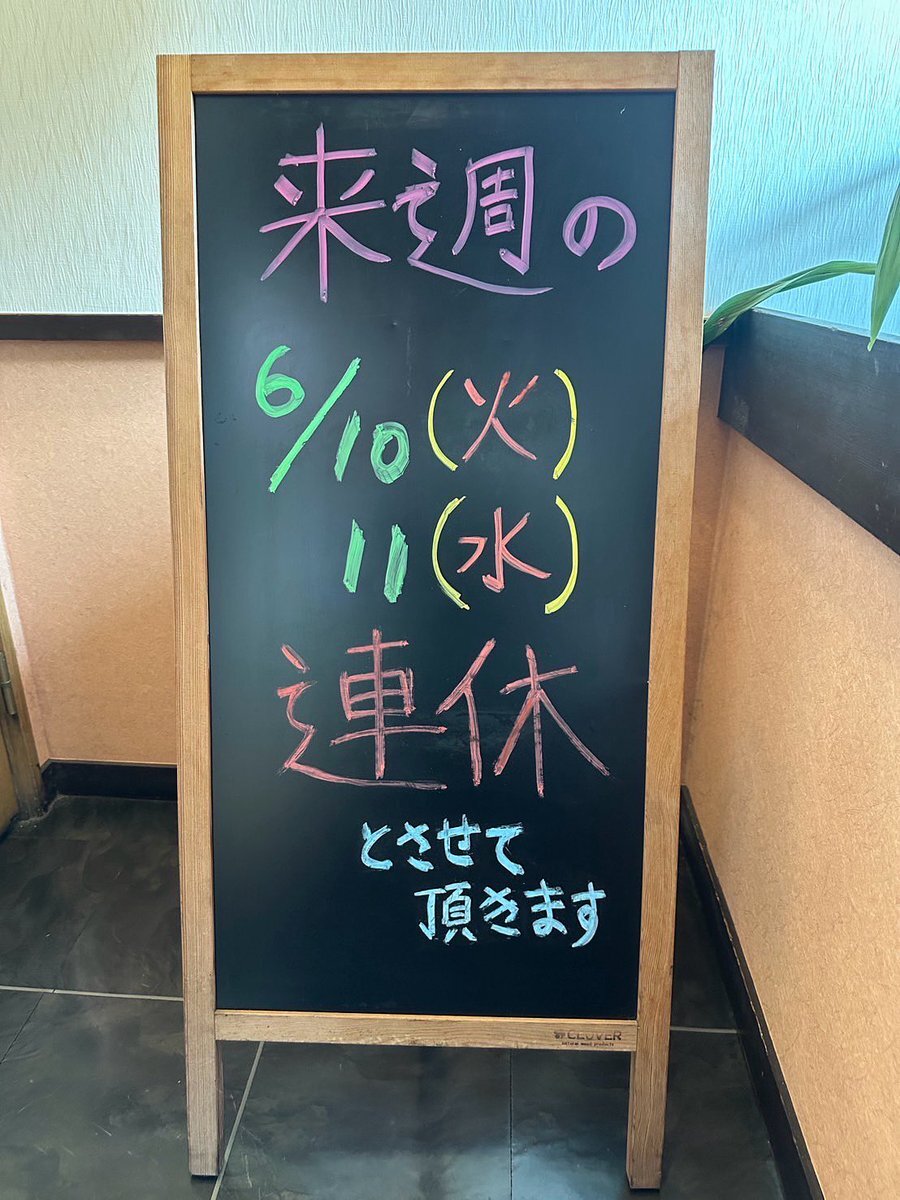 来週の
6/10(火)
11(水)
連休
とさせて
頂きます
CLOVER
natural wood products